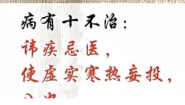 病有十不治：
讳疾忌医，
使虚实寒热妄投，